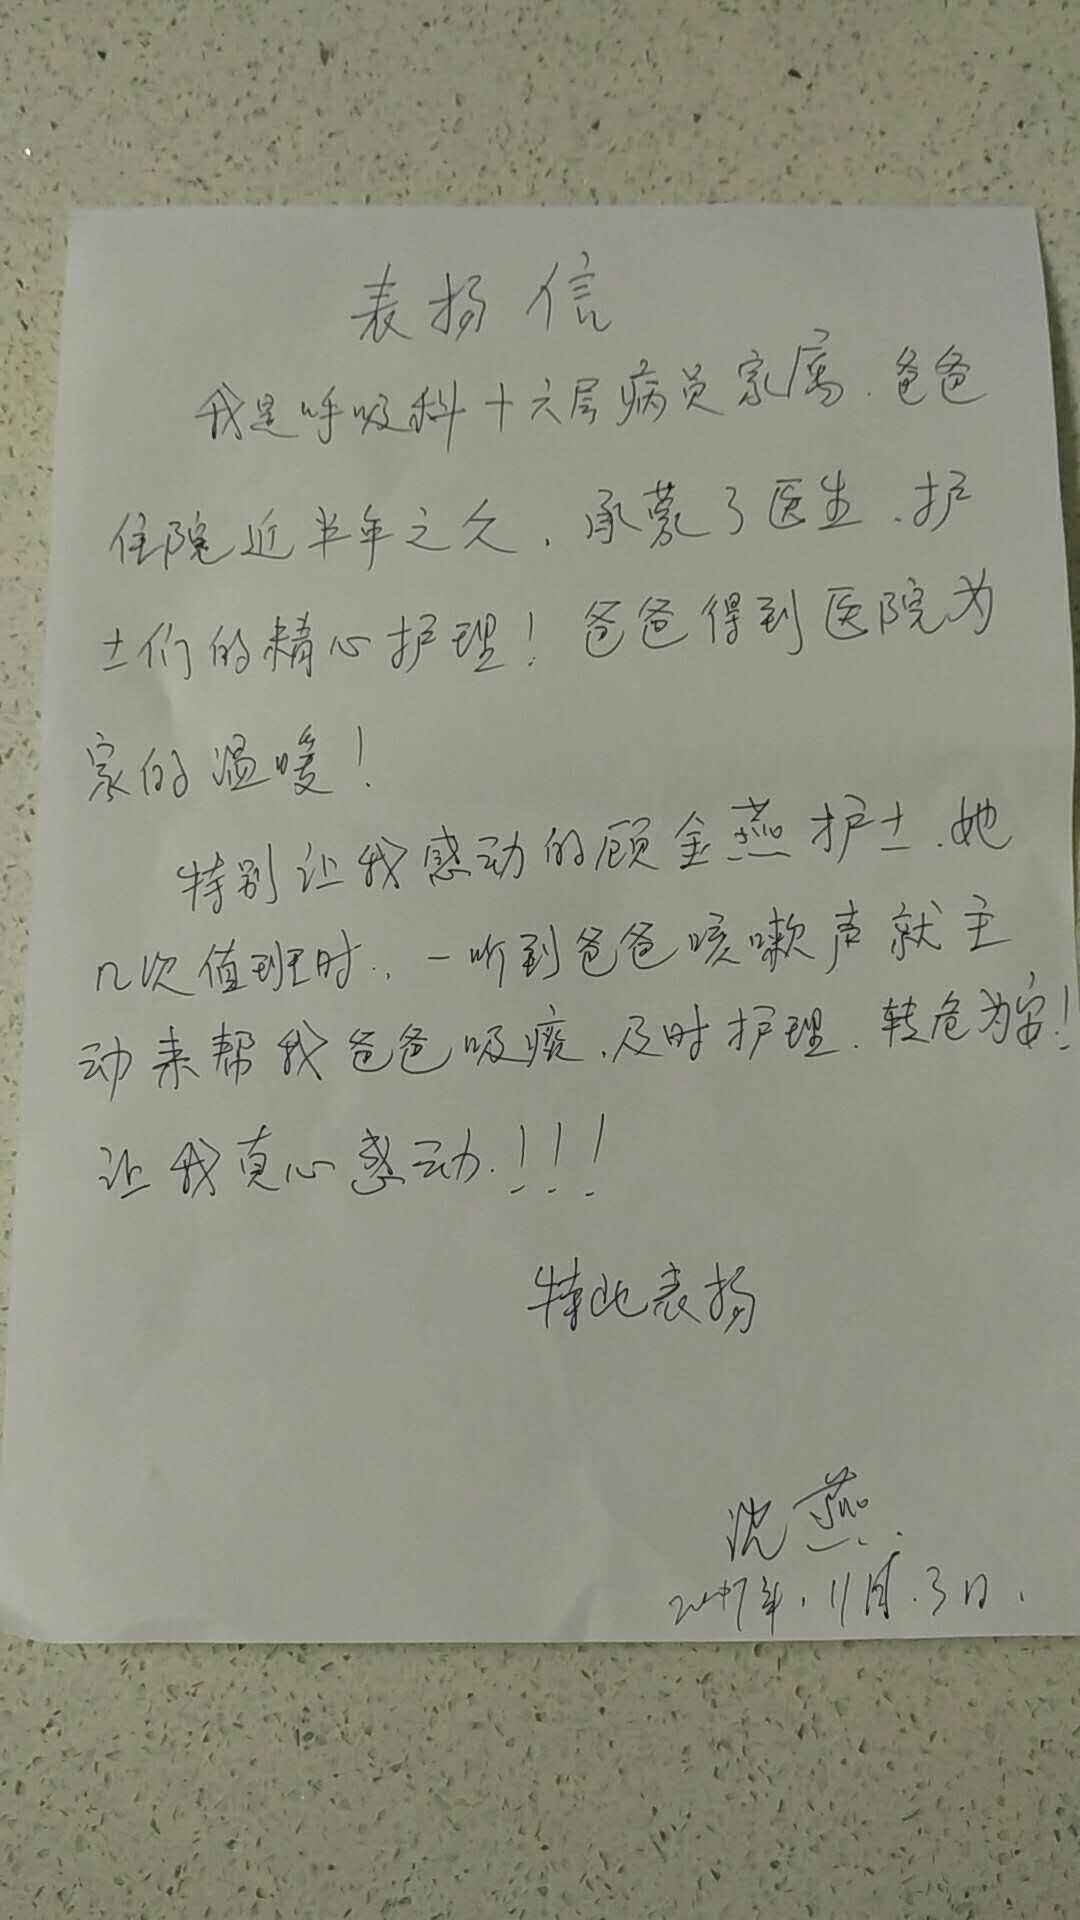 表扬信
我是呼吸科十六层病员家属.爸爸
住院近半年之久,承蒙了医生、护
士们的精心护理!爸爸得到医院为
家的温暖!
特别让我感动的顾金燕护士,她
几次值班时.,一听到爸爸咳嗽声就主
动来帮我爸爸吸痰,及时护理.转危为安!
让我真心感动.!!!
特此表扬
沈燕.
2017年.11月.3日.